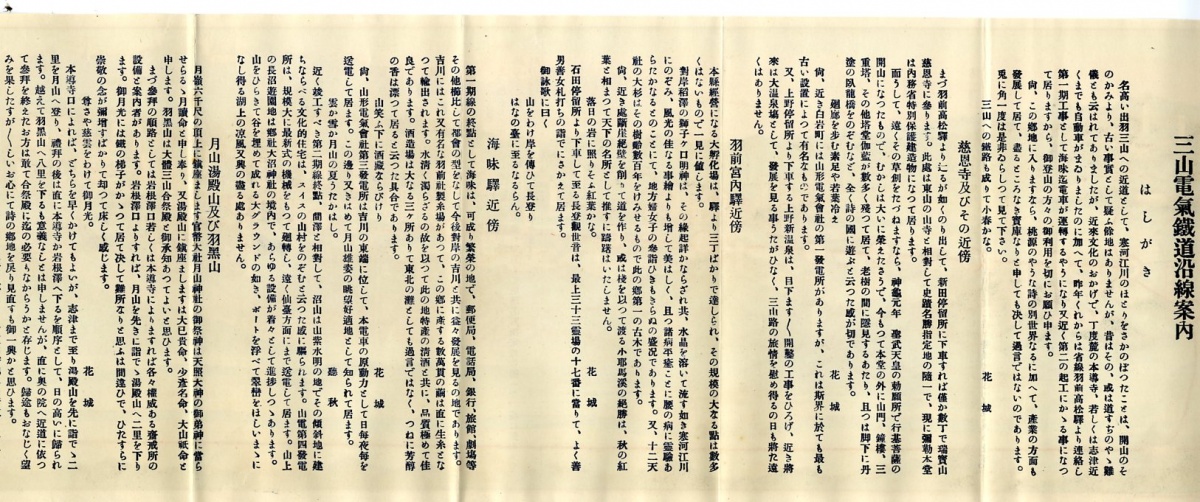 三山電氣鐵道沿線案内
はしがき
名高い出羽三山への近道として、寒河江川のほとりをさかのぼつたことは、開山のそ
のかみより、古い事實として疑ふ餘地はありませんが、昔はその、或は道すぢのやゝ難
儀とも云はれてありましたが、近來文化のおかげで、丁度麓の本導寺、若しくは志津近
くまでも自動車がまゐりましたのに加へて、昨年くれからは省線羽前高松驛より連絡し
第一期工事として、海味迄電車が運轉するやうになり又近く第二の起工にかゝる事になつ
て居りますから、御登山の方々の御利用を切にお願ひ申ます。
尙、この鄕地に入りますならば、桃源のやうな詩の別世界なるに加へて、產業の方面も
發展して居て、盡るところなき寶庫なりと申しても決して過言ではないのであります。
兎に角一度是非ゐらして見て下さい。
三山への鐵路も成りて小春かな。 花城
慈恩寺及びその近傍
まづ羽前高松驛より一にるが如くのり出して、新田停留所に下車すれば僅か數丁で瑞寶山
慈恩寺に參ります。此處は東山の山寺と相對して史蹟名勝指定地の隨一で、現に彌勒本堂
は內務省特別保護建造物になつて居ります。
而うして、遠くその草創をたづねますなら、神龜元年 聖武天皇の勅願所で行基菩薩の
開山になつたもので、むかしは大いに榮えたさうで、今もつて本堂の外に山門、鐘樓、三
重塔、その他塔堂伽藍が數多く殘つて居て、老樹の間に隱見するあたり、且つは脚下に丹
塗の臥龍橋をのぞむなど、全く詩の國に遊ぶと云つた感が切であります。
廻廊をあむ素足や若葉冷え 花城
尙、近き白岩町には山形電氣會社の第一發電所がありますが、これは斯界に於ても最も
古い設置によつて有名なものであります。
又、上野停留所より下車する上野新温泉は、目下ます〳〵開鑿の工事をひろげ、近き將
來は大温泉場として、發展を見る事うたがひなく、三山路の旅情を慰め得るの日も將た遠
くはありません。
羽前宮內驛近傍
本縣經營になる大孵化場は、驛より三丁ばかりで達しられ、その規模の大なる點は數多
くはないもので一見に値します。
對岸稻澤の獅子ヶ口神社は、その緣起淺かならざれ共、水晶を溶いて流す如き寒河江川
にのぞみ、風光の佳なる事繪よりも增して美はしく、且つ諸病平癒ことに腰の病に靈驗あ
らたかなるとのことにて、地方婦女子の參詣ひきもきらぬの盛況であります。又、十二天
社の大杉はその樹齡數百年をけみせるもので此の鄕第一の古木であります。
尙、近き處斷崖絕壁を削りて道を作り、或は棧を以つて渡る小耶馬溪の絕勝は、秋の紅
葉と相まつて天下の名所として推すに躊躇はいたしません。
落日の岩に照りそふ紅葉かな。 花城
石田停留所より下車して至る長登觀世音は、最上三十三靈場の十七番に當りて、よく善
男善女札打ちの詣でにさかえて居ます。
御詠歌に曰く
山をわけ岸を傳ひて長登り
はなの臺に至るなるらん。
海味驛近傍
第一期線の終點として海味は、可成り繁榮の地で、郵便局、電話局、銀行、旅館、劇場等
その他櫛比して都會の型をなして今後對岸の吉川と共に益々發展を見るの地であります。
吉川にはこれ又有名な羽前社製糸場があつて、この鄕に產する數萬貫の繭は直に生糸とな
つて輸出されます。水淸く濁らざるの故を以つて此の地特產の清酒と共に、品質極めて佳
良であります。酒造場は大なる三ヶ所あり東北の灘としても過言ではなく、つねに芳醇
の香は漂つて居ると云つた具合であります。
山笑ふ下に酒豪ならびけり 花城
尙、山形電氣會社第三發電所は吉川の東端に位して、本電車の原動力として日每夜每を
送電して居ます。この邊り又さはめて月山雄姿の眺望好適地として知られて居ます。
雲か雪か月山の夏うたかはし。 聽秋
近く竣工すべき第二期線終點、間澤と相對して、沼山は山紫水明の地でその傾斜地に建
ちならべる文化的住宅は、スイスの山村をのぞむと云つた感に驅られます。山電第四發電
所は、規模大に最新式の機械をもつて廻轉し、遠く仙臺方面にまで送電して居ます。山上
の長沼遊園地は鄕社大沼神社の境內で、あらゆる設備が着々として進捗しつゝあります。
山をひらきて谷を埋めて成れる大グラウンドの如き、ボートを浮べて翠巒をほしいまゝに
なし得る湖上の凉風又興の盡る處ありません。
月山湯殿山及び羽黑山
月嶽六千尺の頂上に鎭座まします官幣大社月山神社の御祭神は天照大神の御弟神に當ら
せらるゝ月讀命と申し奉り、又湯殿山に鎭座ましますは大已貴命、少彥名命、大山祇命と
申します。羽黑山は大體三山合祭殿と御承知あつてよいと思ひます。
まづ參拜の順路としては岩根澤口若しくは本導寺によりますれば各々權威ある齋戒所の
設備と案內者があります。岩根澤口よりすれば、月山を先きに詣でゝ湯殿山へ二里を下り
ます。御月光には鐵の梯子がかゝつて居て決して難所なりと思ふは間違ひで、ひたすらに
崇敬の念が彌增すばかりで却つて床しく感じます。
尊さや慈雲をわけて御月光。 花城
本導寺口によれば、どちらを早くかけてもよいが、志津まで至り湯殿山を先に詣でゝ二
里を月山へ登り、禮拜の後は直に本導寺か岩根澤へ下るを順序として、日の高いに歸られ
ます。越えて羽黑山へ八里を下るも意義なしとは申しませんが、直に奧の院へ近道に依つ
て參拜を終えたお方は敢て合祭殿に迄の必要もなからうかと存じます。歸途もおなじく望
みを果したすが〳〵しいお心にて詩の鄕地を戾り見直すも御一興かと思ひます。